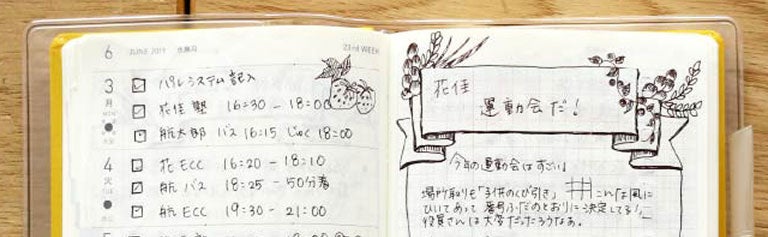 6 JUNE 2019 水無月 23rd WEEK
3 月 MON
パルシステム記入
花佳 塾 16:30 - 18:00
航太郎 バス 16:15 じゅく 18:00
4 火 TUE
花 ECC 16:20 - 18:10
航 バス 18:25 - 50分着
航 ECC 19:30 - 21:00
花佳
運動会だ!
今年の運動会はすごい」
場所取りも「子供のくび引き」 これな風に
ひいてあって 番号ふだのとおりに決定してる!
役員さんは大変だったろうなぁ。